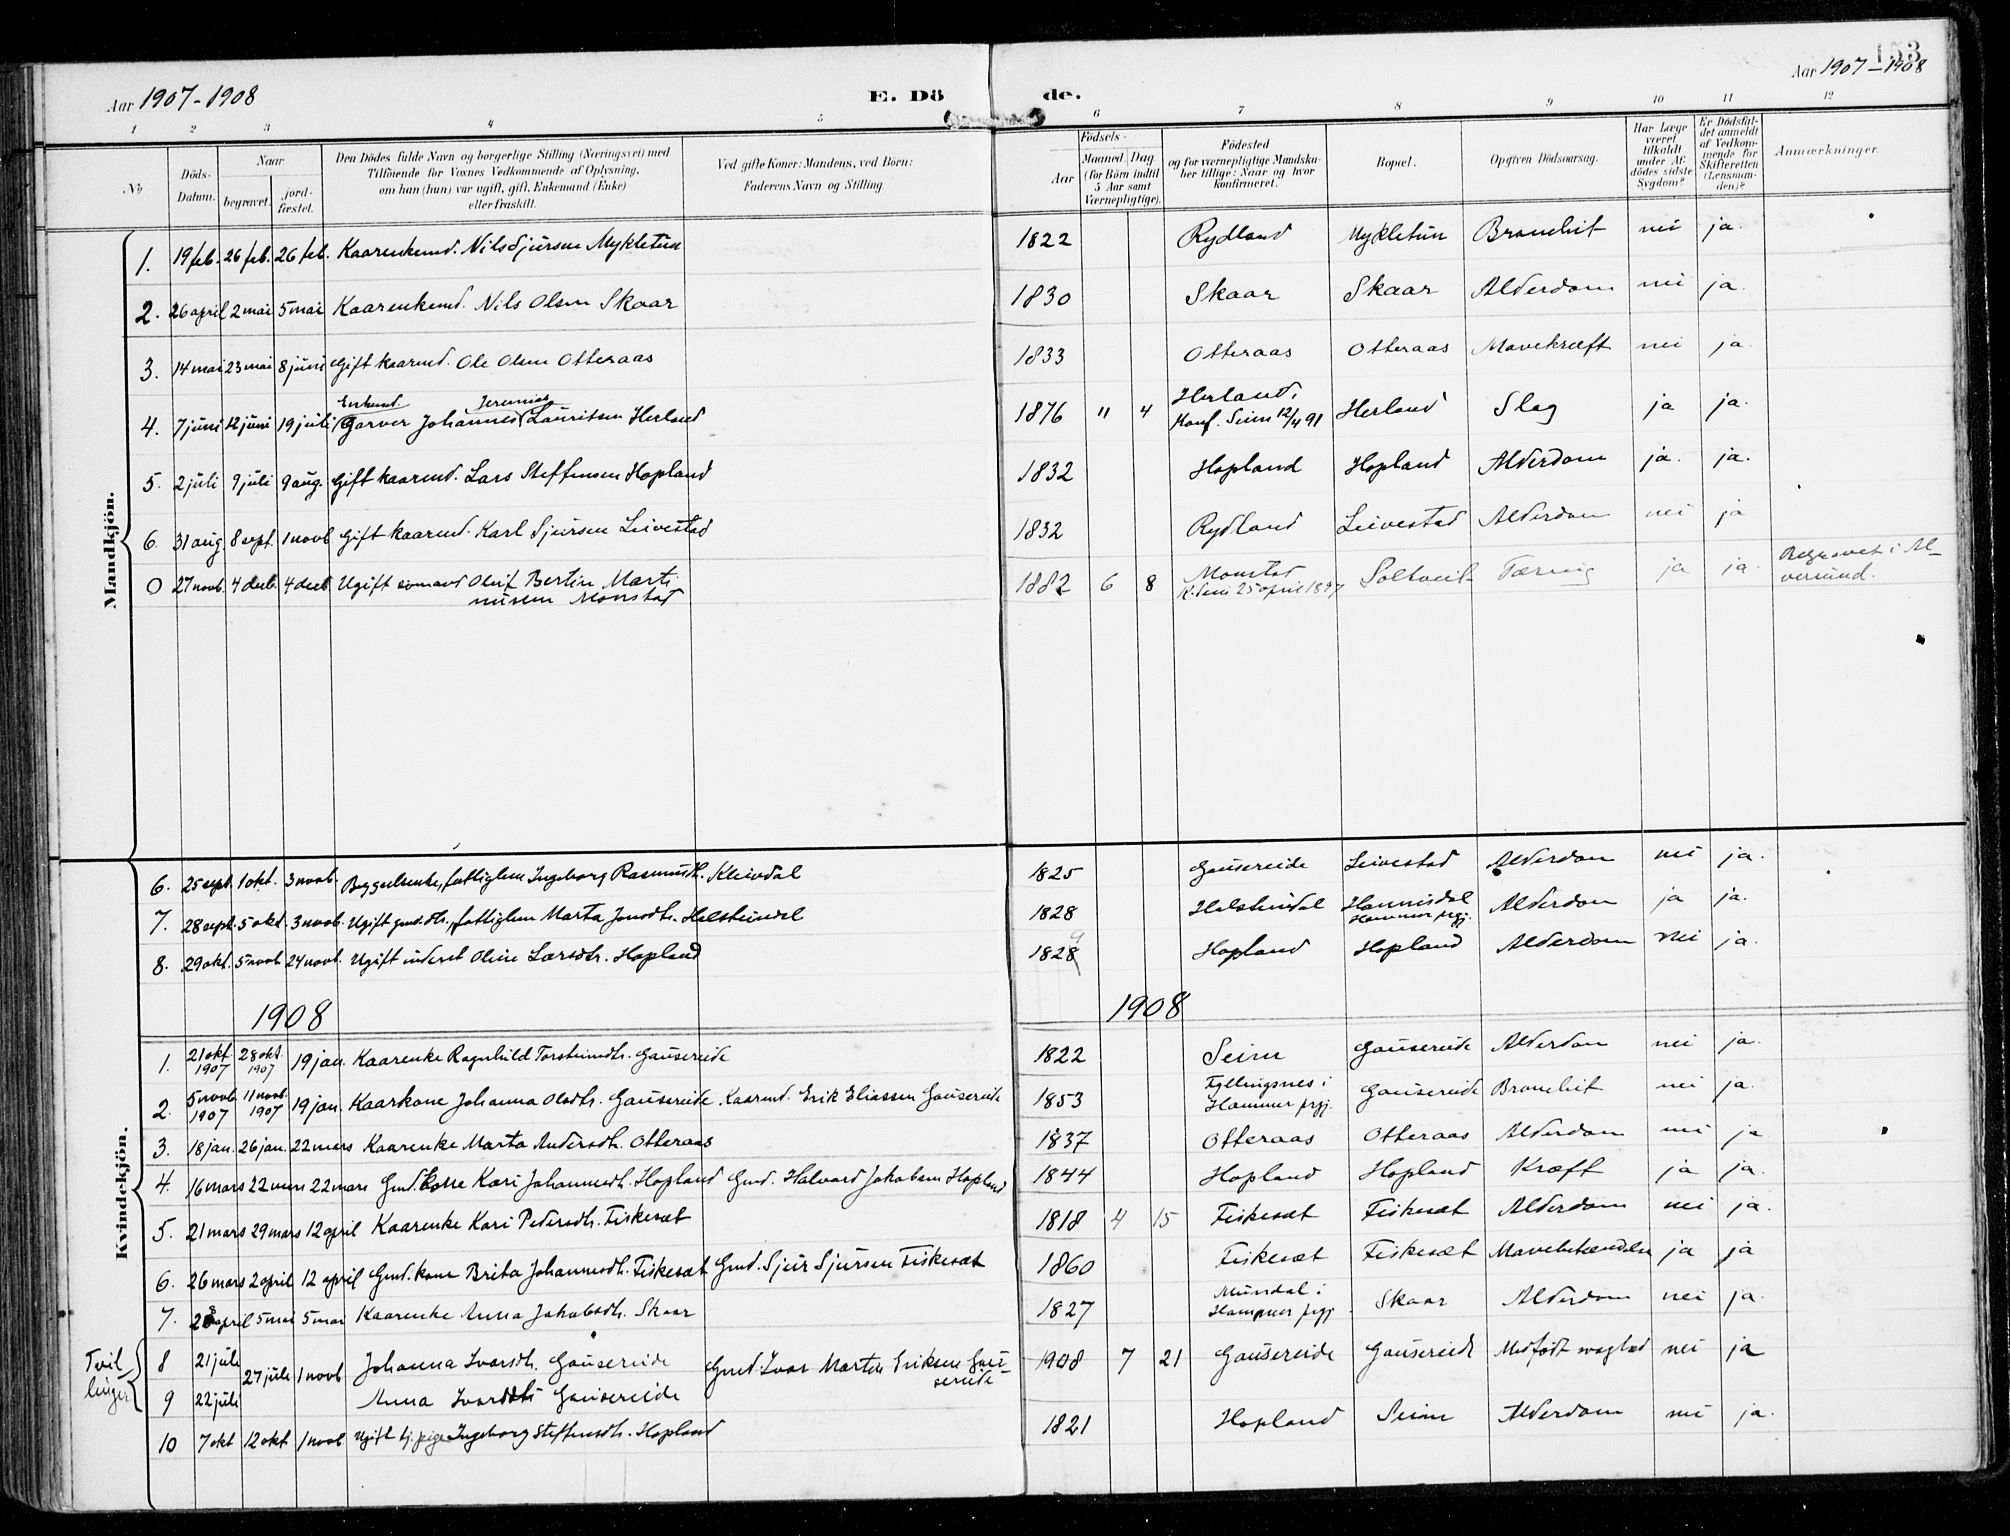 153
Aar 1907-1908 E. Dö de. Aar 1907-1908
1 2 3 4 5 6 7 8 9 10 11 12
No Döds-Datum. Naar begravet. jord-fæstet. Den Dödes fulde Navn og borgerlige Stilling (Næringsvei) med Tilföiende for Voxnes Vedkommende af Oplysning, om han (hun) var ugift, gift, Enkemand (Enke) eller fraskilt. Ved gifte Koner: Mandens, ved Börn: Faderens Navn og Stilling. Födsels- Aar Maaned. Dag (for Börn indtil 5 Aar samt Værnepligtige). Födested og for værnepligtige Mandska-ber tillige: Naar og hvor Konfirmeret. Bopæl. Opgiven Dödsaarsag. Har Læge været tilkaldt under Af-dödes sidste Sygdom? Er Dödsfal-det anmeldt af Vedkom-mende for Skifteretten (Lensman-den)? Anmærkninger.
Mandkjön.
1. 19 feb. 26 feb. 26 feb. Kaarenkemd. Nils Sjursen Mykletun 1822 Rydland Mykletun Bronchit nei ja.
2. 26 april 2 mai 5 mai Kaarenkemd. Nils Olsen Skaar 1830 Skaar Skaar Alderdom nei ja.
3. 14 mai 23 mai 8 juni Gift kaarmd. Ole Olsen Otteraas 1833 Otteraas Otteraas Mavekræft nei ja.
Enkemd Jeremias Herland,
4. 7 juni 12 juni 19 juli Garver Johannes Lauritsen Herland 1876 " 4 Konf. Seim 12/4 91 Herland Slag ja ja.
5. 2 juli 9 juli 9 aug. Gift kaarmd. Lars Steffensen Hopland 1832 Hopland Hopland Alderdom ja. ja.
6. 31 aug 8 sept. 1 novb Gift kaarmd. Karl Sjursen Leivestad 1832 Rydland Leivestad Alderdom nei ja
0 27 novb. 4 decb 4 decb Ugift sömand Oluf Bertin Marti- 1882 6 8 Monstad Soltveit Tæring ja ja. Begravet i Al-
nusen Monstad K. Seim 25 april 1897 versund.
6. 25 sept. 1 okt. 3 novb. fattiglem Ingeborg Rasmusdt. Kleivdal 1825 Gausereide Leivestad Alderdom nei ja.
7. 28 sept. 5 okt. 3 novb. Ugift gmd.dtr., fattiglem Marta Jonsdtr. Helsteindal 1828 Helsteindal Hannisdal Hammer prgj. Alderdom ja ja.
8. 29 okt. 5 novb 24 novb. Ugift inderst Oline Larsdtr. Hopland 1828 9 Hopland Hopland Alderdom nei ja.
1908 1908
Kvindekjön.
1. 21 okt 1907 28 okt. 1907 19 jan. Kaarenke Ragnhild Torsteinsdtr. Gausereide 1822 Seim Gausereide Alderdom nei ja.
2. 5 novb 1907 11 novb. 1907 19 jan. Kaarkone Johanna Olsdtr. Gausereide. Kaarmd. Erik Eliassen Gausereide 1853 Fyllingsnes i Hammer prgj. Gausereide Bronchit nei ja.
3. 18 jan. 26 jan. 22 mars Kaarenke Marta Andersdtr. Otteraas 1837 Otteraas Otteraas Alderdom nei ja
4. 16 mars 22 mars 22 mars Gmd. kone Kari Johannesdt. Hopland Gmd. Halvard Jakobsen Hopland 1844 Hopland Hopland Kræft ja ja.
5. 21 mars 29 mars 12 april Kaarenke Kari Pedersdtr. Fiskesæt 1818 4 15 Fiskesæt Fiskesæt Alderdom nei ja.
6. 26 mars 2 april 12 april Gmd. kone Brita Johannesdt. Fiskesæt Gmd. Sjur Sjursen Fiskesæt 1860 Fiskesæt Fiskesæt Mavebetændelse ja ja
7. 28 april 5 mai 5 mai Kaarenke Anna Jakobsdtr. Skaar 1827 Mundal i Hammer prgj Skaar Alderdom nei ja.
Tvil-linger
8 21 juli 27 juli 1 novb Johanna Ivarsdtr. Gausereide Gmd. Ivar Martin Eriksen Gau-sereide 1908 7 21 Gausereide Gausereide Medfödt svaghed nei ja
9 22 juli Anna Ivarsdtr Gausereide
10 7 okt 12 okt 1 novb Ugift tj. pige Ingeborg Steffensdtr. Hopland 1821 Hopland Seim Alderdom nei ja.